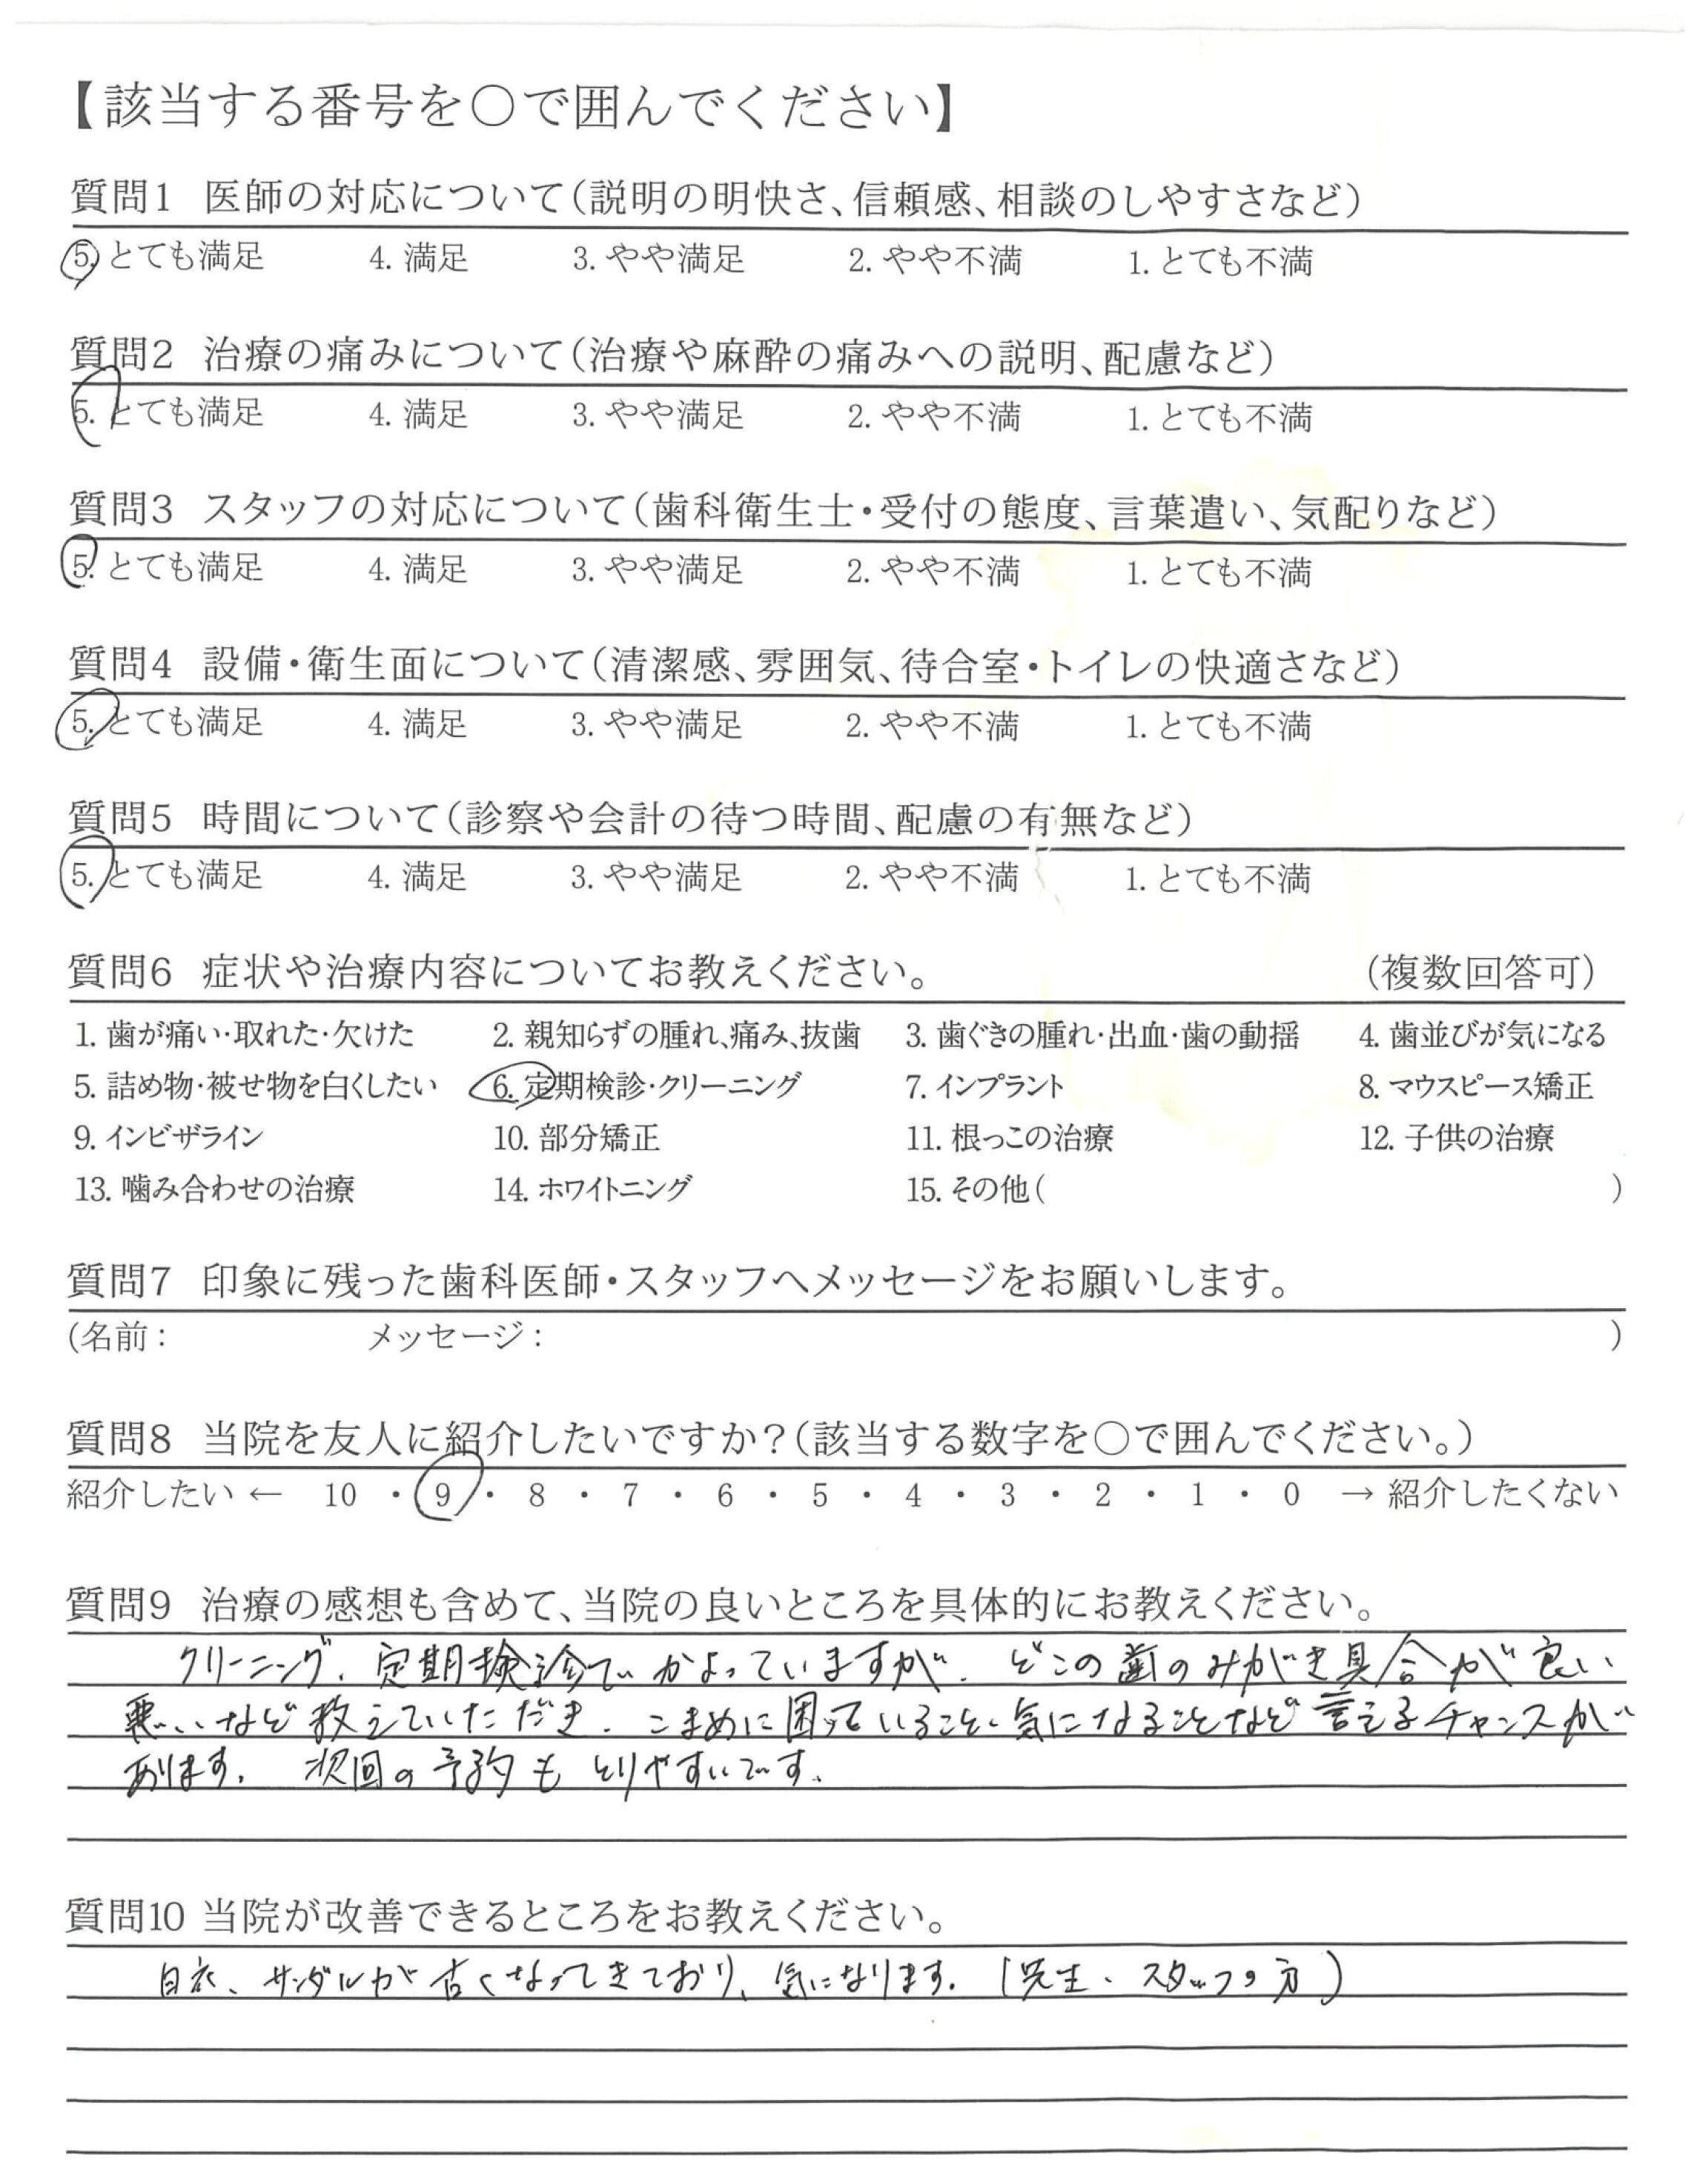 【該当する番号を〇で囲んでください】
質問1 医師の対応について(説明の明快さ、信頼感、相談のしやすさなど)
5. とても満足 4. 満足 3. やや満足 2. やや不満 1. とても不満
質問2 治療の痛みについて(治療や麻酔の痛みへの説明、配慮など)
5. とても満足 4. 満足 3. やや満足 2. やや不満 1. とても不満
質問3 スタッフの対応について(歯科衛生士・受付の態度、言葉遣い、気配りなど)
5. とても満足 4. 満足 3. やや満足 2. やや不満 1. とても不満
質問4 設備・衛生面について(清潔感、雰囲気、待合室・トイレの快適さなど)
5. とても満足 4. 満足 3. やや満足 2. やや不満 1. とても不満
質問5 時間について(診察や会計の待つ時間、配慮の有無など)
5. とても満足 4. 満足 3. やや満足 2. やや不満 1. とても不満
質問6 症状や治療内容についてお教えください。 (複数回答可)
1. 歯が痛い・取れた・欠けた 2. 親知らずの腫れ、痛み、抜歯 3. 歯ぐきの腫れ・出血・歯の動揺 4. 歯並びが気になる
5. 詰め物・被せ物を白くしたい 6. 定期検診・クリーニング 7. インプラント 8. マウスピース矯正
9. インビザライン 10. 部分矯正 11. 根っこの治療 12. 子供の治療
13. 噛み合わせの治療 14. ホワイトニング 15. その他( )
質問7 印象に残った歯科医師・スタッフへメッセージをお願いします。
(名前: メッセージ: )
質問8 当院を友人に紹介したいですか?(該当する数字を〇で囲んでください。)
紹介したい ← 10 ・ 9 ・ 8 ・ 7 ・ 6 ・ 5 ・ 4 ・ 3 ・ 2 ・ 1 ・ 0 → 紹介したくない
質問9 治療の感想も含めて、当院の良いところを具体的にお教えください。
クリーニング、定期検診でかよっていますが、どこの歯のみがき具合が良い
悪いなど教えていただき、こまめに困っていること、気になることなど言えるチャンスが
あります。次回の予約もとりやすいです。
質問10 当院が改善できるところをお教えください。
白衣、サンダルが古くなってきており、気になります。(先生、スタッフの方)